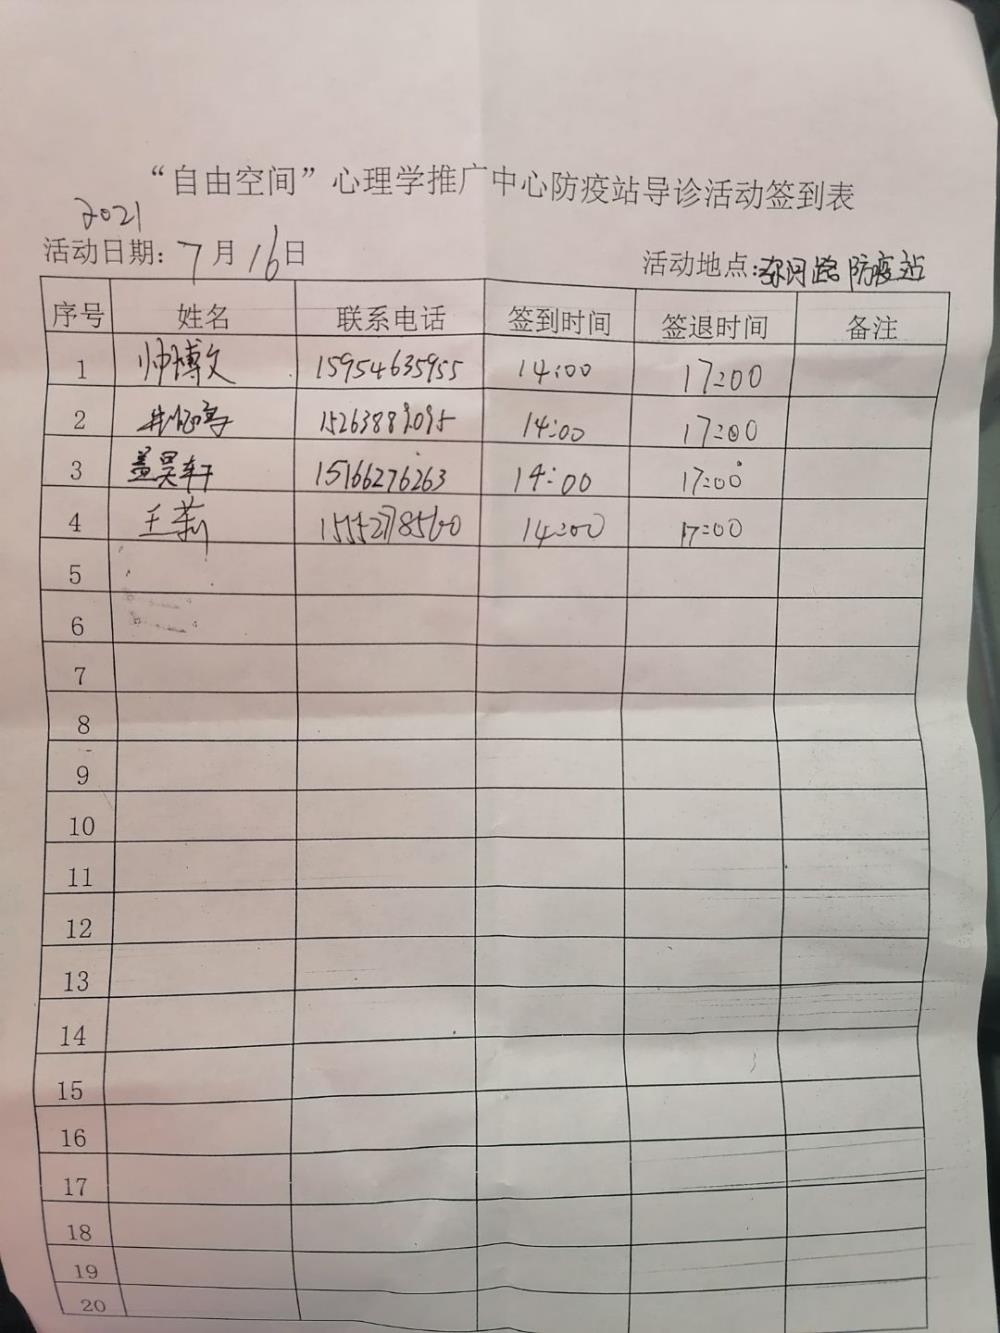 “自由空间”心理学推广中心防疫站导诊活动签到表
2021
活动日期: 7月16日 活动地点: 弥河路防疫站
序号 姓名 联系电话 签到时间 签退时间 备注
1 帅博文 15954635955 14:00 17:00
2 14:00 17:00
3 盖昊轩 15166276263 14:00 17:00
4 王莉 15552785600 14:00 17:00
5
6
7
8
9
10
11
12
13
14
15
16
17
18
19
20